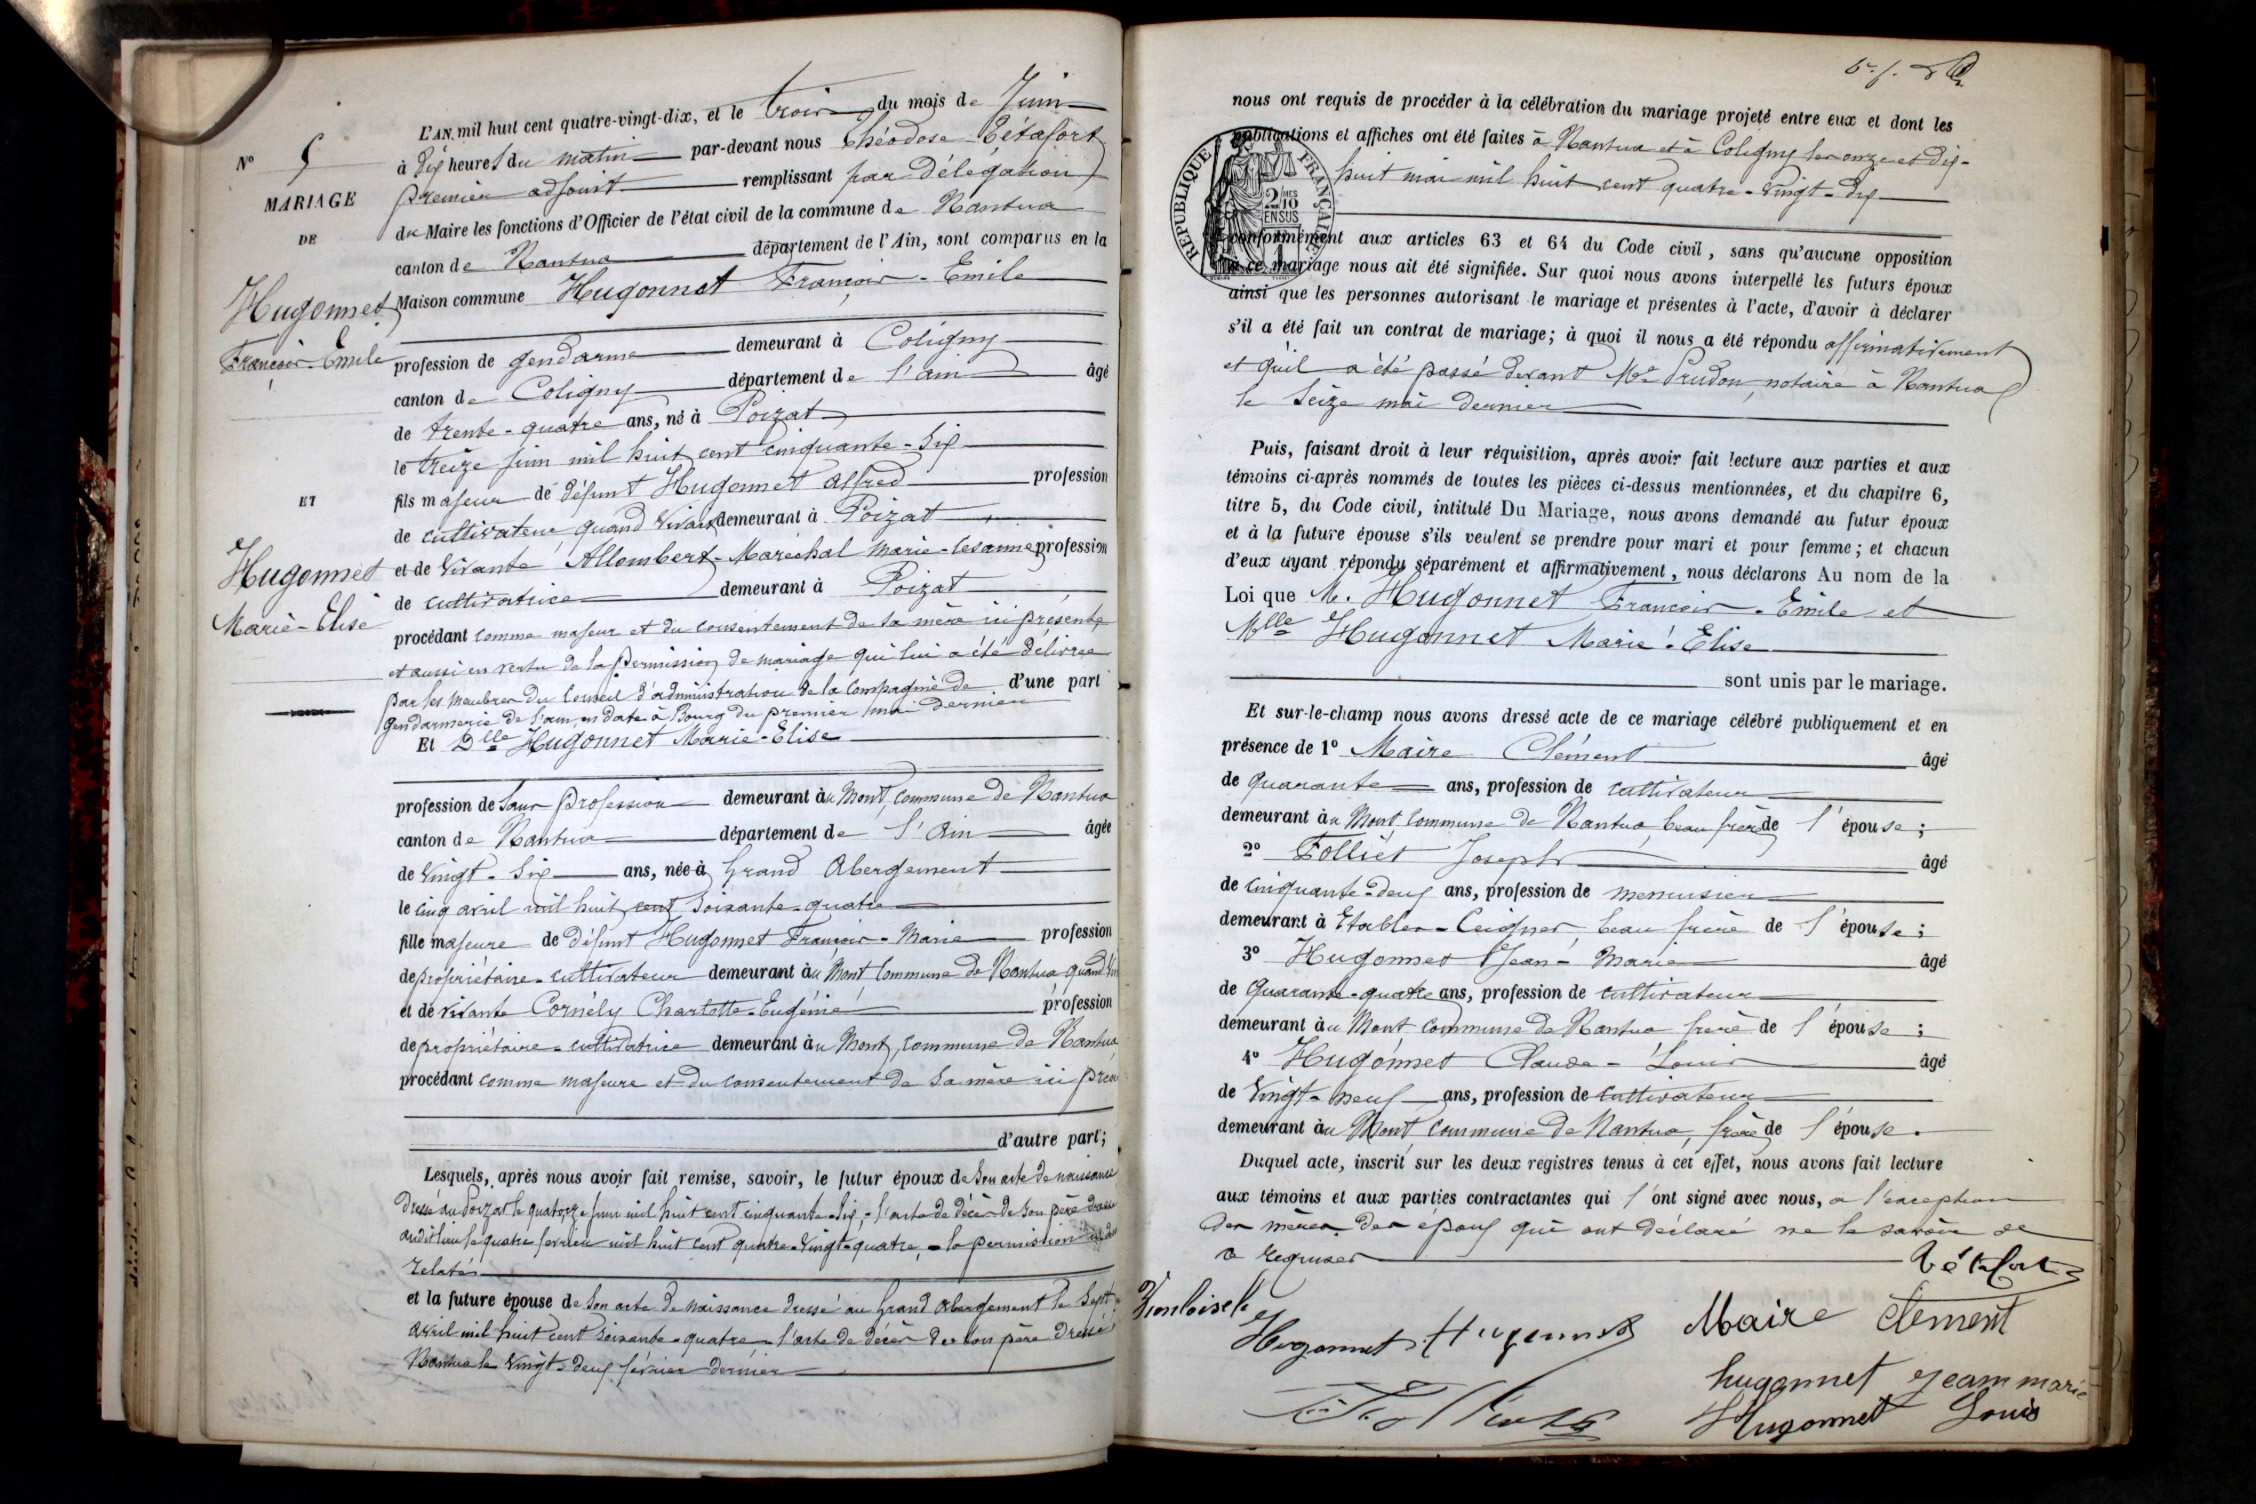 N° 5
MARIAGE
DE
Hugonnet
François-Emile
ET
Hugonnet
Marie-Elise
L'AN mil huit cent quatre-vingt-dix, et le trois du mois de Juin
à dix heures du matin par-devant nous Théodose Bétafort
premier adjoint remplissant par délégation
du Maire les fonctions d'Officier de l'état civil de la commune de Nantua
canton de Nantua département de l'Ain, sont comparus en la
Maison commune Hugonnet François-Emile
profession de gendarme demeurant à Coligny
canton de Coligny département de l'ain âgé
de trente-quatre ans, né à Poizat
le treize juin mil huit cent cinquante-six
fils majeur de défunt Hugonnet Alfred profession
de cultivateur quand vivait demeurant à Poizat
et de vivante Allombert-Maréchal Marie-Césanne profession
de cultivatrice demeurant à Poizat
procédant comme majeur et du consentement de sa mère ici présente
et aussi en vertu de la permission de mariage qui lui a été délivrée
par les membres du Conseil d'administration de la Compagnie de d'une part
gendarmerie de l'ain, en date à Bourg du premier mai dernier
Et Dlle Hugonnet Marie-Elise
profession de sans profession demeurant au Mont, commune de Nantua
canton de Nantua département de l'Ain âgée
de vingt-six ans, née à Grand Abergement
le cinq avril mil huit cent soixante-quatre
fille majeure de défunt Hugonnet François-Marie profession
de propriétaire-cultivateur demeurant au Mont, commune de Nantua quand
et de vivante Cornély Charlotte-Eugénie profession
de propriétaire-cultivatrice demeurant au Mont, commune de Nantua
procédant comme majeure et du consentement de sa mère ici
d'autre part;
Lesquels, après nous avoir fait remise, savoir, le futur époux de son acte de naissance
dressé au Poizat le quatorze juin mil huit cent cinquante-six, - l'acte de décès de son père dressé
audit lieu le quatre février mil huit cent quatre-vingt-quatre, - la permission
relatés
et la future épouse de son acte de naissance dressé au Grand Abergement le sept
avril mil huit cent soixante-quatre - l'acte de décès de son père dressé
Nantua le vingt-deux février dernier
nous ont requis de procéder à la célébration du mariage projeté entre eux et dont les
publications et affiches ont été faites à Nantua et à Coligny les onze et dix-
huit mai mil huit cent quatre-vingt-dix
RÉPUBLIQUE FRANÇAISE
2/10 EN SUS
conformément aux articles 63 et 64 du Code civil, sans qu'aucune opposition
à ce mariage nous ait été signifiée. Sur quoi nous avons interpellé les futurs époux
ainsi que les personnes autorisant le mariage et présentes à l'acte, d'avoir à déclarer
s'il a été fait un contrat de mariage; à quoi il nous a été répondu affirmativement
et qu'il a été passé devant Me Prudon, notaire à Nantua
le seize mai dernier
Puis, faisant droit à leur réquisition, après avoir fait lecture aux parties et aux
témoins ci-après nommés de toutes les pièces ci-dessus mentionnées, et du chapitre 6,
titre 5, du Code civil, intitulé Du Mariage, nous avons demandé au futur époux
et à la future épouse s'ils veulent se prendre pour mari et pour femme; et chacun
d'eux ayant répondu séparément et affirmativement, nous déclarons Au nom de la
Loi que M. Hugonnet François-Emile et
Mlle Hugonnet Marie-Elise
sont unis par le mariage.
Et sur-le-champ nous avons dressé acte de ce mariage célébré publiquement et en
présence de 1° Maire Clément âgé
de quarante ans, profession de cultivateur
demeurant au Mont commune de Nantua, beau frère de l'épouse;
2° Folliet Joseph âgé
de cinquante-deux ans, profession de menuisier
demeurant à Etables-Ceignes, beau frère de l'épouse;
3° Hugonnet Jean-Marie âgé
de quarante-quatre ans, profession de cultivateur
demeurant au Mont, commune de Nantua frère de l'épouse;
4° Hugonnet Claude-Louis âgé
de vingt-neuf ans, profession de cultivateur
demeurant au Mont commune de Nantua, frère de l'épouse.
Duquel acte, inscrit sur les deux registres tenus à cet effet, nous avons fait lecture
aux témoins et aux parties contractantes qui l'ont signé avec nous, a l'exception
des mères des époux qui ont déclaré ne le savoir de
ce requises
Bétafort
Hugonnet Hugonnet Maire Clement
hugonnet jean marie
Folliet Hugonnet Louis